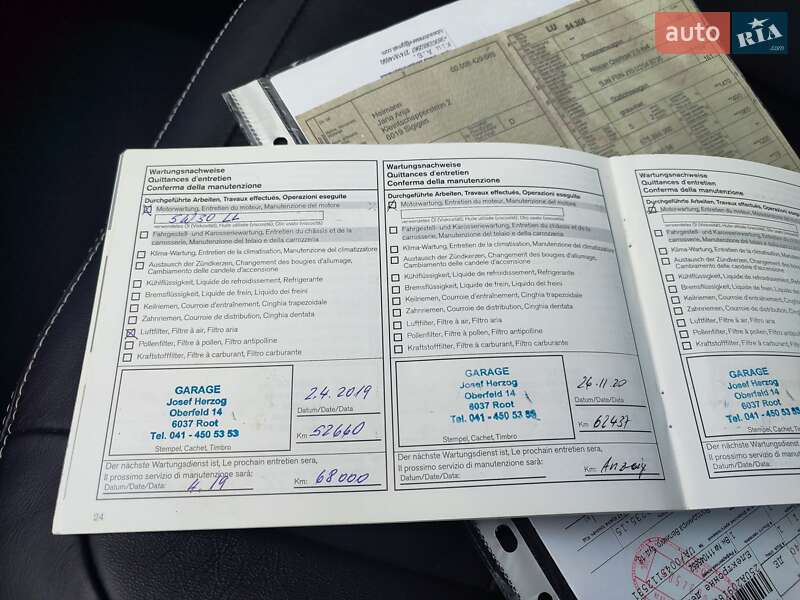 auto RIA
.com
LU 64 368
60.008.429/685
Heimann
Jana Anja
6019 Sigigen
D
Wartungsnachweise
Quittances d'entretien
Conferma della manutenzione
Durchgeführte Arbeiten, Travaux effectués, Operazioni eseguite
Motorwartung, Entretien du moteur, Manutenzione del motore
5W30 LL
verwendetes Öl (Viskosität), Huile utilisée (viscosité), Olio usato (viscosità)
Fahrgestell- und Karosseriewartung, Entretien du châssis et de la
carrosserie, Manutenzione del telaio e della carrozzeria
Klima-Wartung, Entretien de la climatisation, Manutenzione del climatizzatore
Austausch der Zündkerzen, Changement des bougies d'allumage,
Cambiamento delle candele d'accensione
Kühlflüssigkeit, Liquide de refroidissement, Refrigerante
Bremsflüssigkeit, Liquide de frein, Liquido dei freini
Keilriemen, Courroie d'entraînement, Cinghia trapezoidale
Zahnriemen, Courroie de distribution, Cinghia dentata
Luftfilter, Filtre à air, Filtro aria
Pollenfilter, Filtre à pollen, Filtro antipolline
Kraftstofffilter, Filtre à carburant, Filtro carburante
GARAGE
Josef Herzog
Oberfeld 14
6037 Root
Tel. 041 - 450 53 53
Stempel, Cachet, Timbro
2.4.2019
Datum/Date/Data
Km 52660
Der nächste Wartungsdienst ist, Le prochain entretien sera,
Il prossimo servizio di manutenzione sarà:
Datum/Date/Data: 4.19
Km: 68000
24
Wartungsnachweise
Quittances d'entretien
Conferma della manutenzione
Durchgeführte Arbeiten, Travaux effectués, Operazioni eseguite
Motorwartung, Entretien du moteur, Manutenzione del motore
verwendetes Öl (Viskosität), Huile utilisée (viscosité), Olio usato (viscosità)
Fahrgestell- und Karosseriewartung, Entretien du châssis et de la
carrosserie, Manutenzione del telaio e della carrozzeria
Klima-Wartung, Entretien de la climatisation, Manutenzione del climatizzatore
Austausch der Zündkerzen, Changement des bougies d'allumage,
Cambiamento delle candele d'accensione
Kühlflüssigkeit, Liquide de refroidissement, Refrigerante
Bremsflüssigkeit, Liquide de frein, Liquido dei freini
Keilriemen, Courroie d'entraînement, Cinghia trapezoidale
Zahnriemen, Courroie de distribution, Cinghia dentata
Luftfilter, Filtre à air, Filtro aria
Pollenfilter, Filtre à pollen, Filtro antipolline
Kraftstofffilter, Filtre à carburant, Filtro carburante
GARAGE
Josef Herzog
Oberfeld 14
6037 Root
Tel. 041 - 450 53 53
Stempel, Cachet, Timbro
26.11.20
Datum/Date/Data
Km 62437
Der nächste Wartungsdienst ist, Le prochain entretien sera,
Il prossimo servizio di manutenzione sarà:
Datum/Date/Data:
Km: Anzeig
Wartungsnachweise
Quittances d'entretien
Conferma della manutenzione
Durchgeführte Arbeiten, Travaux effectués,
Motorwartung, Entretien du moteur,
verwendetes Öl (Viskosität), Huile utilisée
Fahrgestell- und Karosseriewartung,
carrosserie, Manutenzione del telaio
Klima-Wartung, Entretien de la
Austausch der Zündkerzen,
Cambiamento delle candele
Kühlflüssigkeit, Liquide de
Bremsflüssigkeit, Liquide
Keilriemen, Courroie
Zahnriemen, Courroie
Luftfilter, Filtre à air,
Pollenfilter, Filtre à
Kraftstofffilter, Filtre
GARAGE
Josef Herzog
Oberfeld 14
6037 Root
Tel. 041 - 450 53
Stempel, Cachet, Timbro
Der nächste Wartungsdienst
Il prossimo servizio di
Datum/Date/Data: